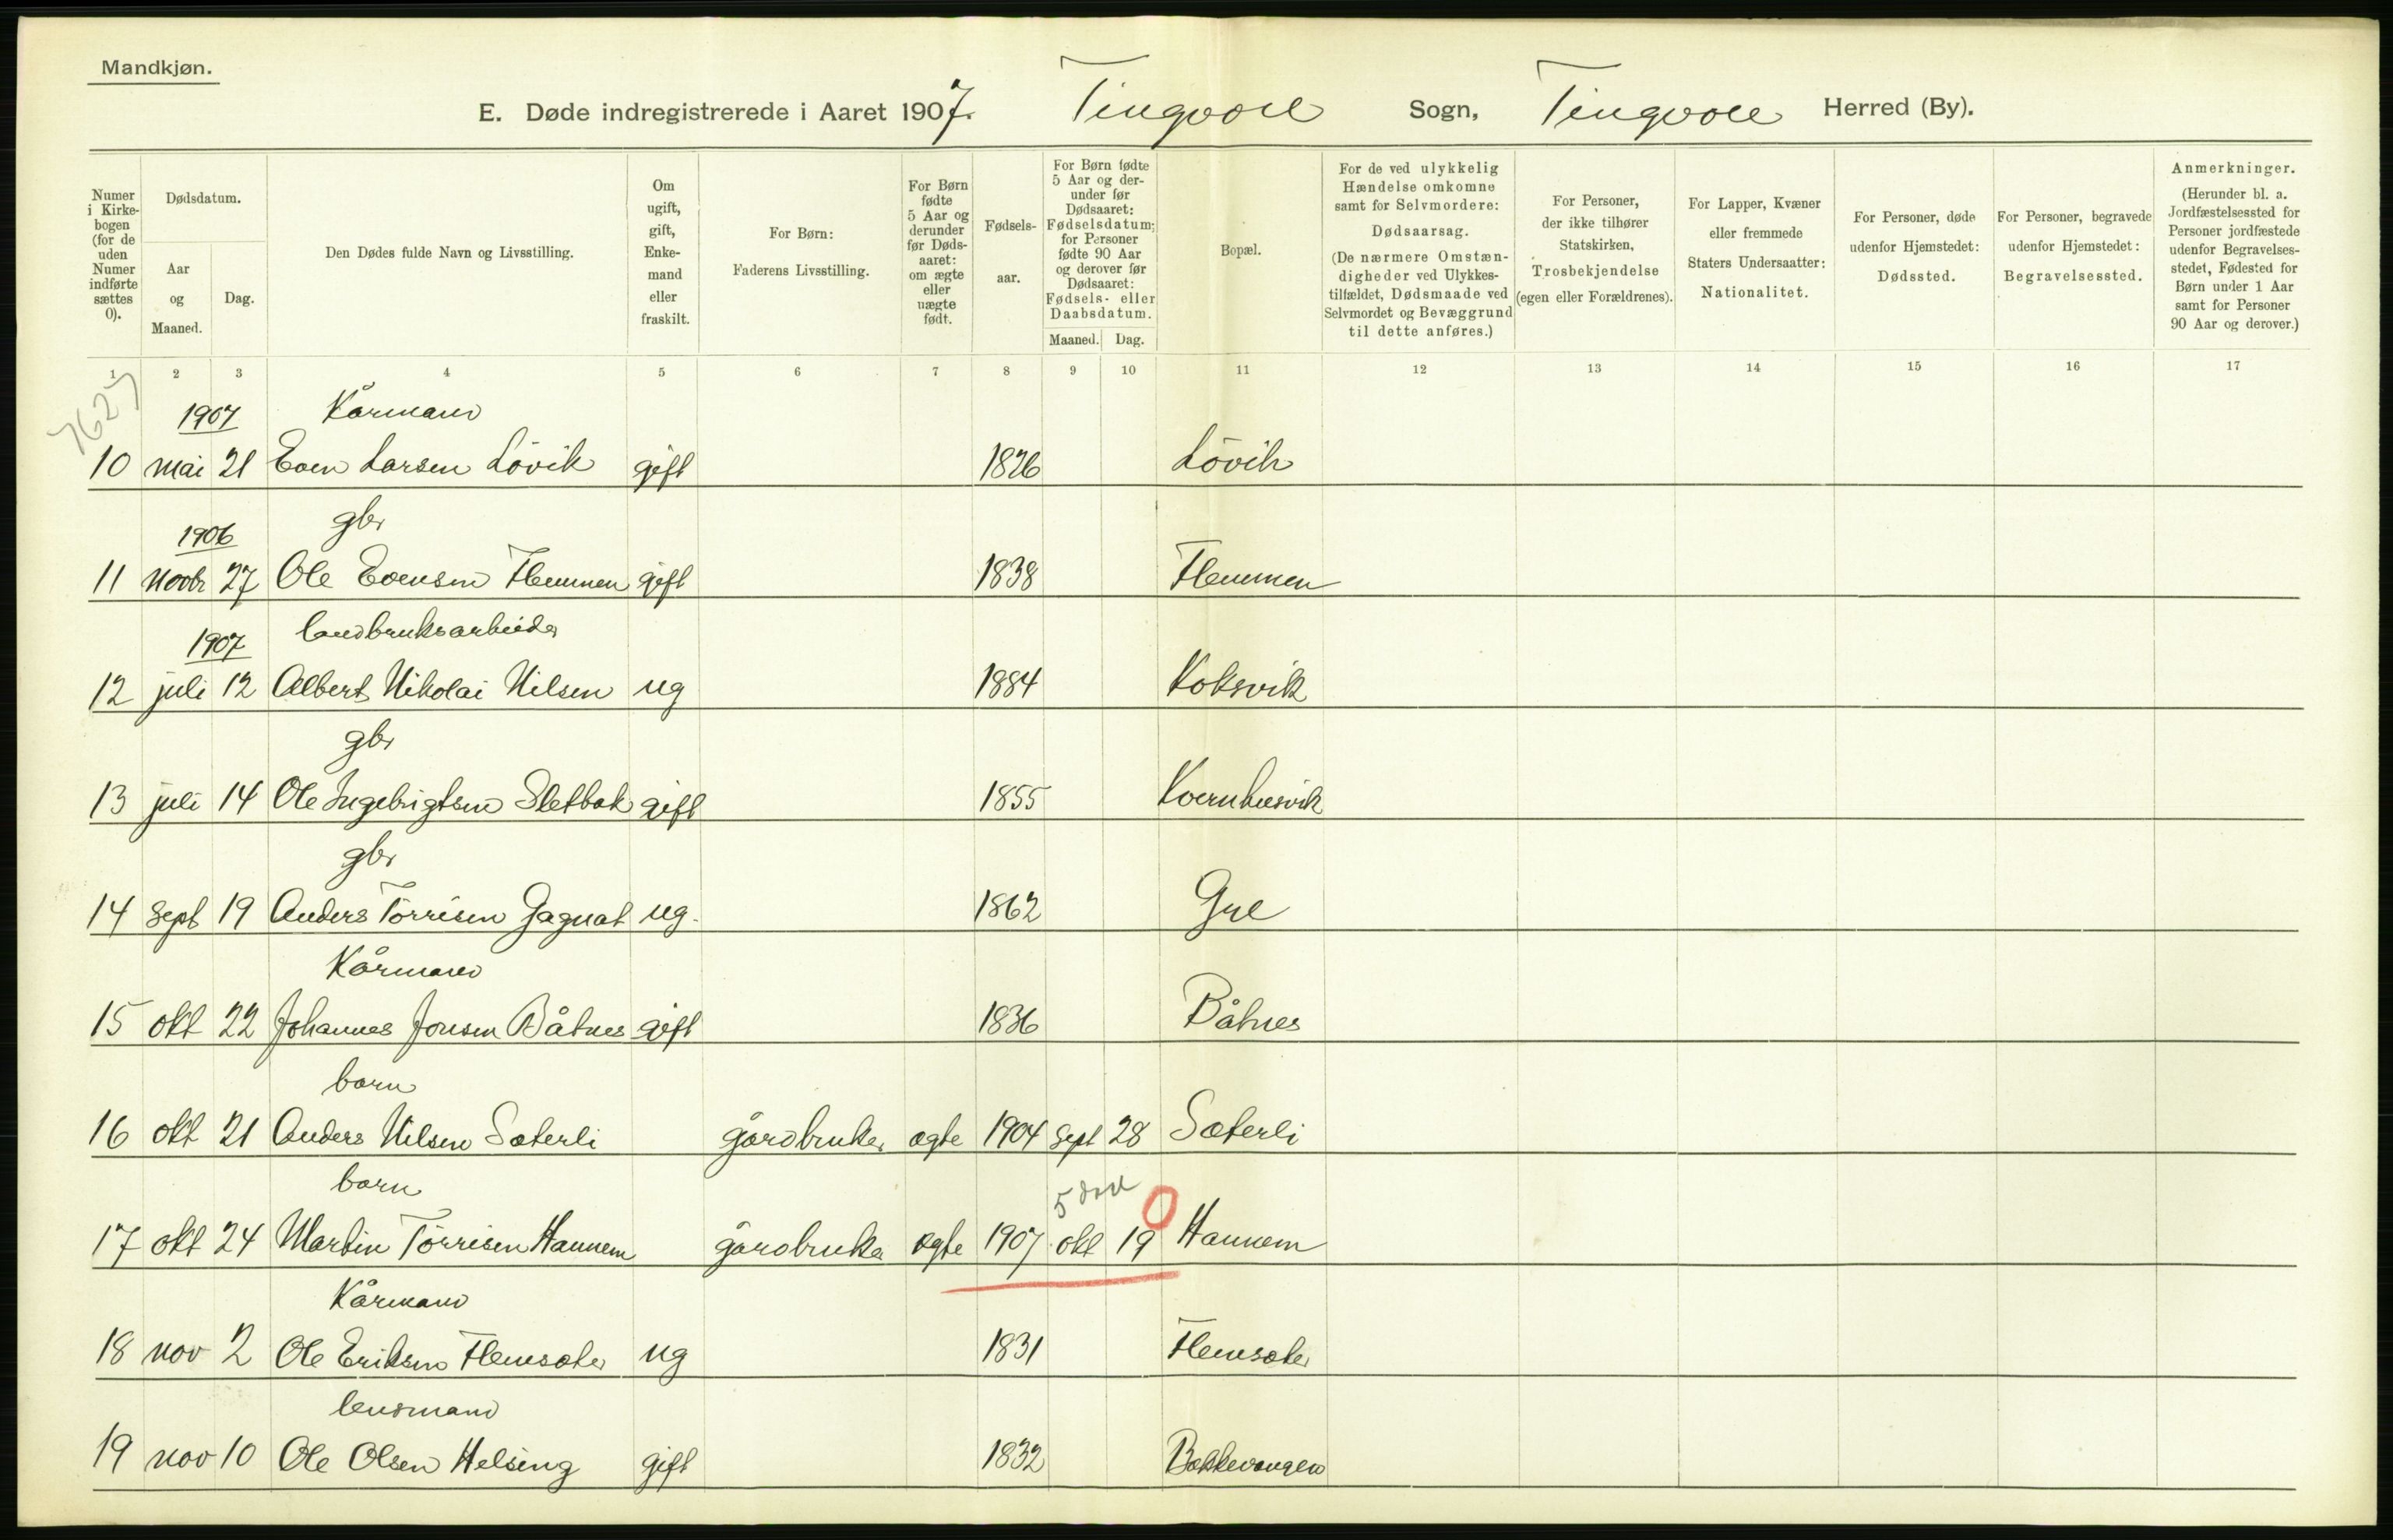 Mandkjøn.
E. Døde indregistrerede i Aaret 1907. Tingvoll Sogn, Tingvoll Herred (By).
Numer i Kirkebogen (for de uden Numer indførte sættes 0).
Dødsdatum.
Aar og Maaned.
Dag.
Den Dødes fulde Navn og Livsstilling.
Om ugift, gift, Enkemand eller fraskilt.
For Børn: Faderens Livsstilling.
For Børn fødte 5 Aar og derunder før Dødsaaret: om ægte eller uægte født.
Fødselsaar.
For Børn fødte 5 Aar og derunder før Dødsaaret: Fødselsdatum; for Personer fødte 90 Aar og derover før Dødsaaret: Fødsels- eller Daabsdatum.
Maaned. Dag.
Bopæl.
For de ved ulykkelig Hændelse omkomne samt for Selvmordere: Dødsaarsag. (De nærmere Omstændigheder ved Ulykkestilfældet, Dødsmaade ved Selvmordet og Bevæggrund til dette anføres.)
For Personer, der ikke tilhører Statskirken, Trosbekjendelse (egen eller Forældrenes).
For Lapper, Kvæner eller fremmede Staters Undersaatter: Nationalitet.
For Personer, døde udenfor Hjemstedet: Dødssted.
For Personer, begravede udenfor Hjemstedet: Begravelsessted.
Anmerkninger. (Herunder bl. a. Jordfæstelsessted for Personer jordfæstede udenfor Begravelsesstedet, Fødested for Børn under 1 Aar samt for Personer 90 Aar og derover.)
1 2 3 4 5 6 7 8 9 10 11 12 13 14 15 16 17
1907 Kårmand
10 mai 21 Even Larsen Lövik gift 1826 Lövik
1906 gbr
11 Novbr 27 Ole Evensen Flemmen gift 1838 Flemmen
1907 landbruksarbeider
12 juli 12 Albert Nikolai Nilsen ug 1884 Koksvik
gbr
13 juli 14 Ole Ingebrigtsen Sletbak gift 1855 Kvernhusvik
gbr
14 Sept 19 Anders Törrisen Gagnat ug. 1862 Gyl
Kårmand
15 okt 22 Johannes Jonsen Båtnes gift 1836 Båtnes
barn
16 okt 21 Anders Nilsen Sæterli gårdbruker ægte 1904 Sept 28 Sæterli
barn 5 0
17 okt 24 Martin Törrisen Hannem gårdbruker ægte 1907 okt 19 Hannem
Kårmand
18 nov 2 Ole Eriksen Flemsæter ug 1831 Flemsæter
lensmand
19 nov 10 Ole Olsen Helsing gift 1832 Bakkevangen